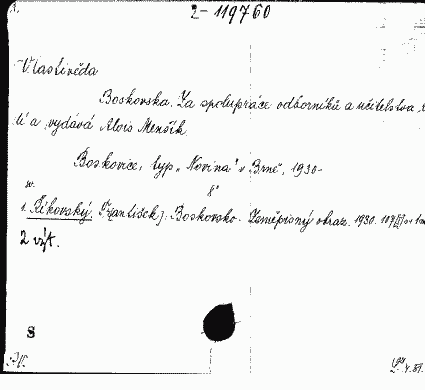 1.
2-119760
Vlastivěda
Boskovska. Za spolupráce odborníků a učitelstva
a vydává Alois Menšík
Boskovice, typ. „Novina" v Brně, 1930-
8°
w.
1. Říkovský, František]: Boskovsko. Zeměpisný obraz. 1930. 107
2 výt.
S